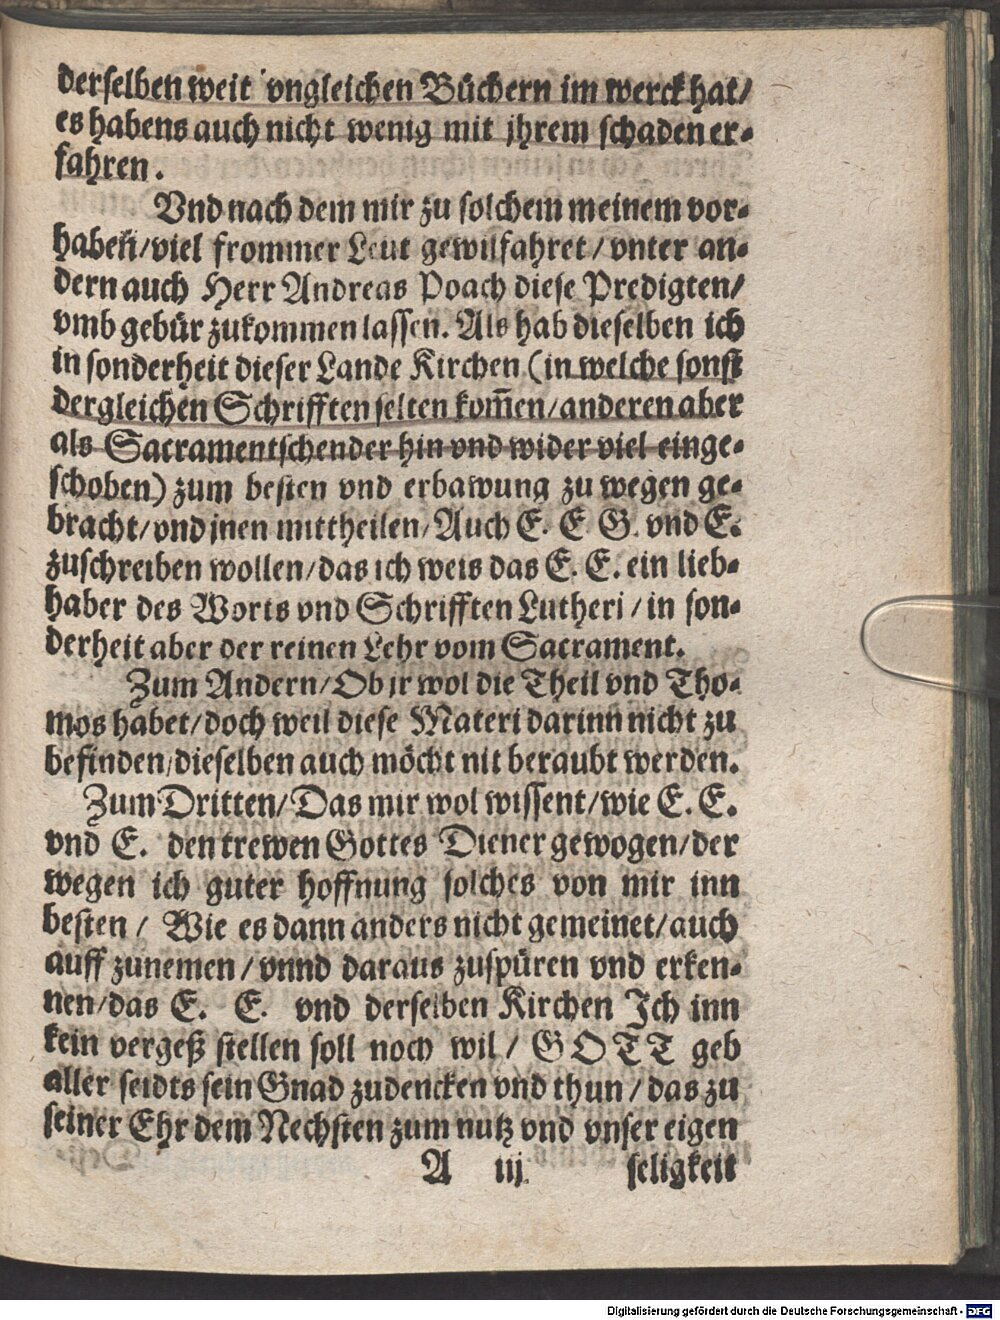 derselben weit vngleichen Büchern im werck hat/
es habens auch nicht wenig mit jhrem schaden er-
fahren.
Vnd nach dem mir zu solchem meinem vor-
haben/viel frommer Leut gewilfahret/vnter an-
dern auch Herr Andreas Poach diese Predigten/
vmb gebür zukommen lassen. Als hab dieselben ich
in sonderheit dieser Lande Kirchen (in welche sonst
dergleichen Schrifften selten kom̃en/anderen aber
als Sacramentschender hin vnd wider viel einge-
schoben) zum besten vnd erbawung zu wegen ge-
bracht/vnd jnen mittheilen/Auch E. E G. vnd E.
zuschreiben wollen/das ich weis das E. E. ein lieb-
haber des Worts vnd Schrifften Lutheri/in son-
derheit aber der reinen Lehr vom Sacrament.
Zum Andern/Ob jr wol die Theil vnd Tho-
mos habet/doch weil diese Materi darinn nicht zu
befinden/dieselben auch möcht nit beraubt werden.
Zum Dritten/Das mir wol wissent/wie E. E.
vnd E. den trewen Gottes Diener gewogen/der
wegen ich guter hoffnung solches von mir inn
besten/ Wie es dann anders nicht gemeinet/auch
auff zunemen/vnnd daraus zuspüren vnd erken-
nen/das E. E. vnd derselben Kirchen Ich inn
kein vergeß stellen soll noch wil/ GOTT geb
aller seidts sein Gnad zudencken vnd thun/das zu
seiner Ehr dem Nechsten zum nutz vnd vnser eigen
A iij seligkeit
Digitalisierung gefördert durch die Deutsche Forschungsgemeinschaft - DFG